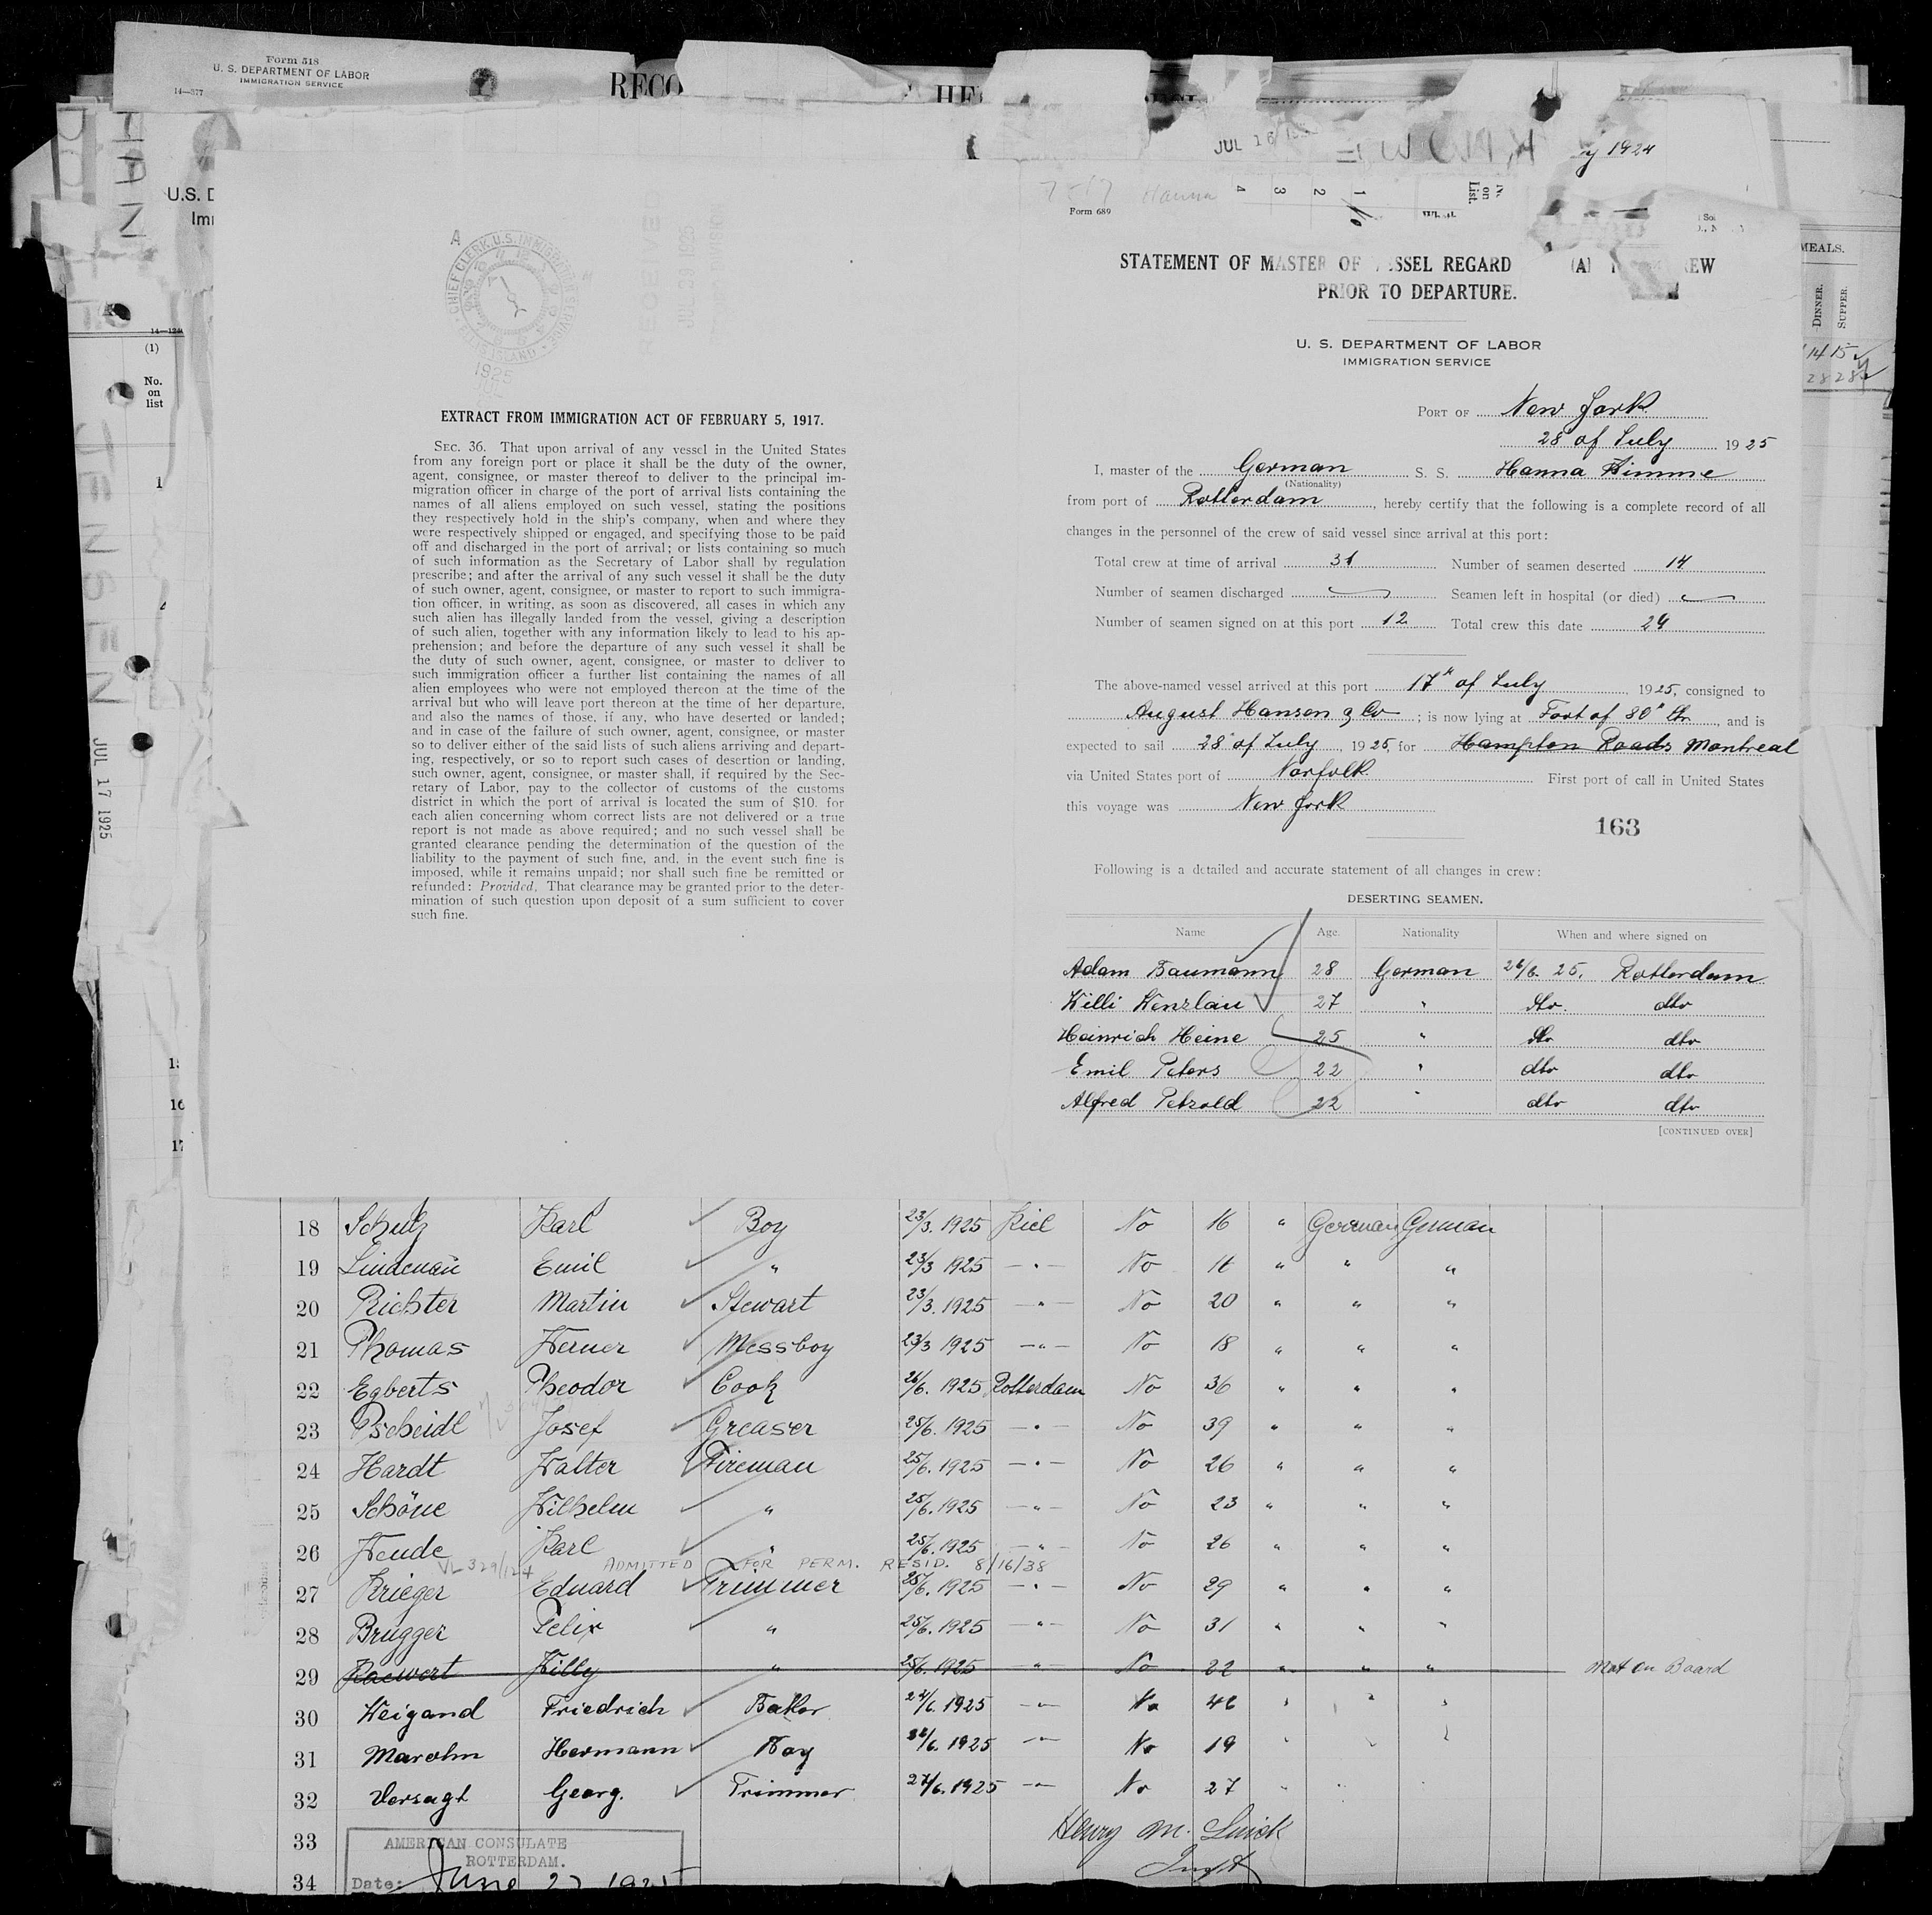 Form 518
U. S. DEPARTMENT OF LABOR
IMMIGRATION SERVICE
14—377
RECO
HE
JUL 16
y 1924
U.S. D
Im
Form 689
Hanna
4 3 2 1
on List.
A
CHIEF CLERK, U.S. IMMIGRATION SERVICE
ELLIS ISLAND
1925
RECEIVED
JUL 28 1925
STATEMENT OF MASTER OF VESSEL REGARD
PRIOR TO DEPARTURE.
U. S. DEPARTMENT OF LABOR
IMMIGRATION SERVICE
MEALS.
DINNER. SUPPER.
14 15
28 28
14—124
(1)
No. on list
1
JENSEN
JUL 17 1925
15
16
17
EXTRACT FROM IMMIGRATION ACT OF FEBRUARY 5, 1917.
SEC. 36. That upon arrival of any vessel in the United States
from any foreign port or place it shall be the duty of the owner,
agent, consignee, or master thereof to deliver to the principal im-
migration officer in charge of the port of arrival lists containing the
names of all aliens employed on such vessel, stating the positions
they respectively hold in the ship's company, when and where they
were respectively shipped or engaged, and specifying those to be paid
off and discharged in the port of arrival; or lists containing so much
of such information as the Secretary of Labor shall by regulation
prescribe; and after the arrival of any such vessel it shall be the duty
of such owner, agent, consignee, or master to report to such immigra-
tion officer, in writing, as soon as discovered, all cases in which any
such alien has illegally landed from the vessel, giving a description
of such alien, together with any information likely to lead to his ap-
prehension; and before the departure of any such vessel it shall be
the duty of such owner, agent, consignee, or master to deliver to
such immigration officer a further list containing the names of all
alien employees who were not employed thereon at the time of the
arrival but who will leave port thereon at the time of her departure,
and also the names of those, if any, who have deserted or landed;
and in case of the failure of such owner, agent, consignee, or master
so to deliver either of the said lists of such aliens arriving and depart-
ing, respectively, or so to report such cases of desertion or landing,
such owner, agent, consignee, or master shall, if required by the Sec-
retary of Labor, pay to the collector of customs of the customs
district in which the port of arrival is located the sum of $10. for
each alien concerning whom correct lists are not delivered or a true
report is not made as above required; and no such vessel shall be
granted clearance pending the determination of the question of the
liability to the payment of such fine, and, in the event such fine is
imposed, while it remains unpaid; nor shall such fine be remitted or
refunded: Provided, That clearance may be granted prior to the deter-
mination of such question upon deposit of a sum sufficient to cover
such fine.
PORT OF New York
28 of July 1925
I, master of the German S. S. Hanna Kimme
(Nationality)
from port of Rotterdam, hereby certify that the following is a complete record of all
changes in the personnel of the crew of said vessel since arrival at this port:
Total crew at time of arrival 31 Number of seamen deserted 14
Number of seamen discharged Seamen left in hospital (or died)
Number of seamen signed on at this port 12 Total crew this date 29
The above-named vessel arrived at this port 17th of July, 1925, consigned to
August Hansen & Co; is now lying at Foot of 80th Str, and is
expected to sail 28th of July, 1925, for Hampton Roads Montreal
via United States port of Norfolk First port of call in United States
this voyage was New York
163
Following is a detailed and accurate statement of all changes in crew:
DESERTING SEAMEN.
Name Age. Nationality When and where signed on
Adam Baumann 28 German 26/6. 25. Rotterdam
Willi Wenzlau 27 " dto. dto
Heinrich Heine 25 " dto dto
Emil Peters 22 " dto dto
Alfred Petzold 22 " dto dto
[CONTINUED OVER]
18 Schulz Karl Boy 23/3. 1925 Kiel No 16 " German German
19 Lindenau Emil " 23/3 1925 —"— No 16 " " "
20 Richter Martin Stewart 23/3. 1925 —"— No 20 " " "
21 Thomas Werner Messboy 23/3 1925 —"— No 18 " " "
22 Egberts Theodor Cook 26/6. 1925 Rotterdam No 36 " " "
23 Pscheidl Josef Greaser 25/6. 1925 —"— No 39 " " "
24 Hardt Walter Fireman 25/6. 1925 —"— No 26 " " "
25 Schöne Wilhelm " 25/6. 1925 —"— No 23 " " "
26 Wende Karl " 25/6. 1925 —"— No 26 " " "
VL 329/124 ADMITTED FOR PERM. RESID. 8/16/38
27 Krieger Eduard Trimmer 25/6. 1925 —"— No 29 " " "
28 Brugger Felix " 25/6. 1925 —"— No 31 " " "
29 Raewert Willy " 25/6. 1925 —"— No 22 " " " Not on Board
30 Weigand Friedrich Baker 26/6. 1925 —"— No 46 " " "
31 Marohn Hermann Boy 26/6. 1925 —"— No 19 " " "
32 Versagt Georg. Trimmer 27/6. 1925 —"— No 27 " " "
33 Henry M.
34 Inspt
AMERICAN CONSULATE
ROTTERDAM.
Date: June 27 1925